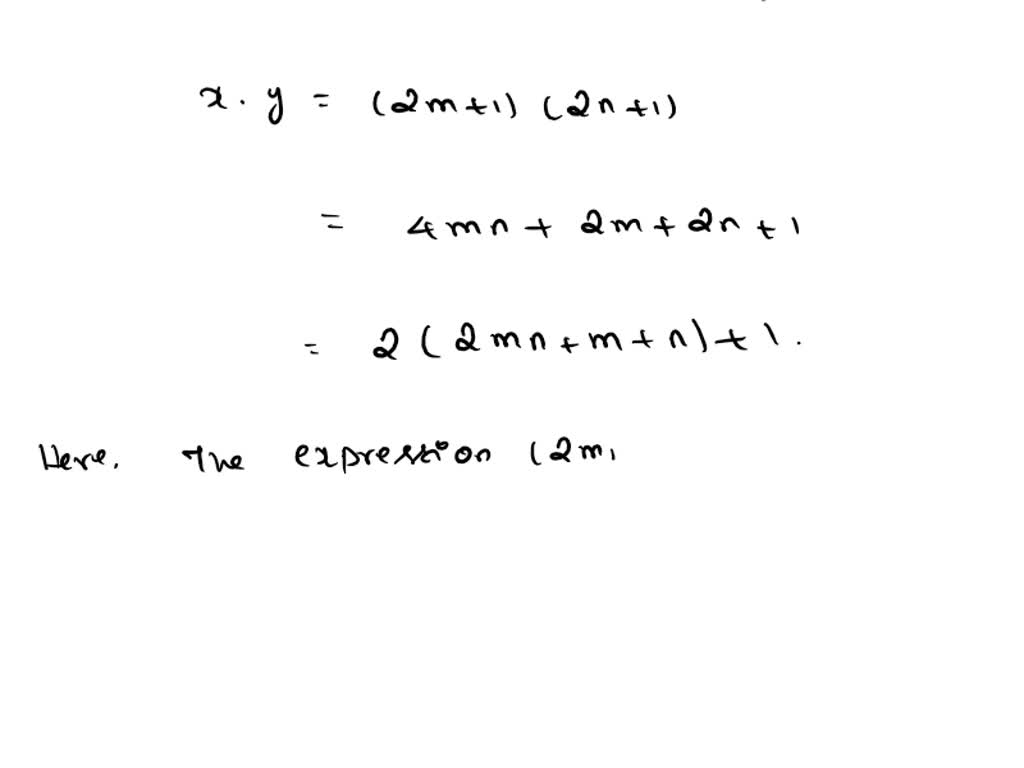 x . y = (2m+1) (2n+1)
= 4mn + 2m + 2n + 1
= 2 ( 2mn + m + n) + 1 .
Here, The expression (2m